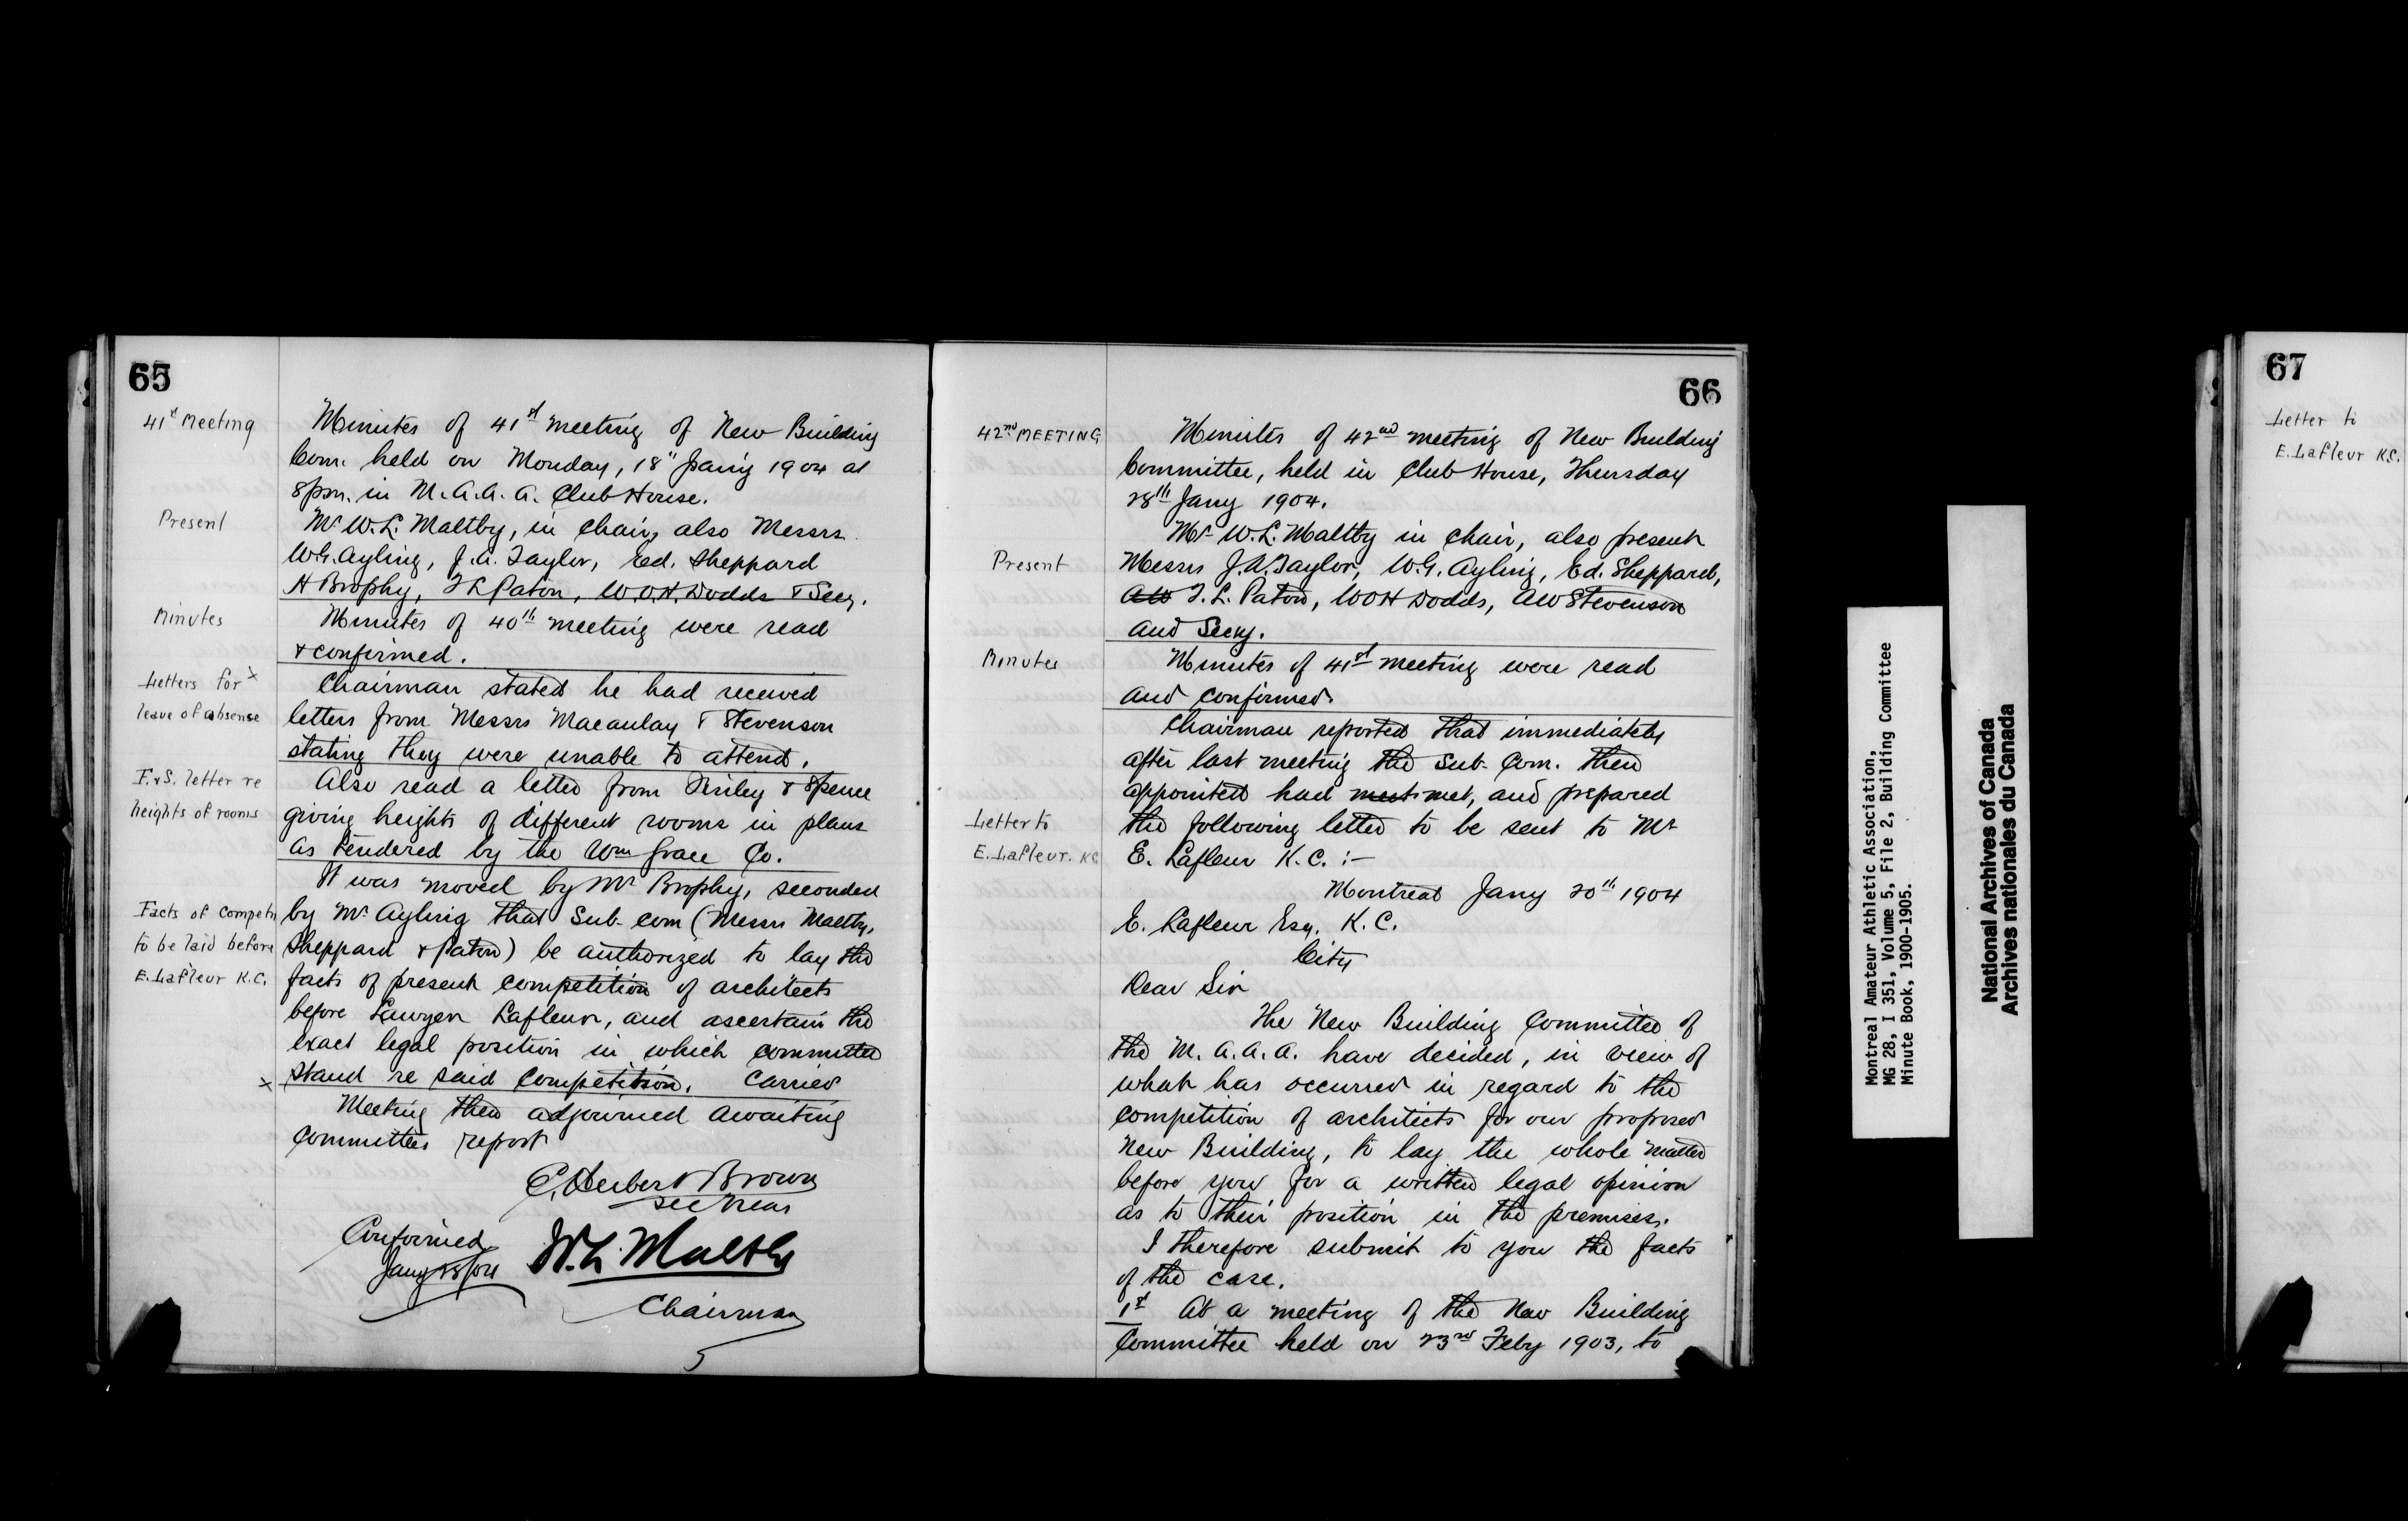 65
41st Meeting
Minutes of 41st meeting of New Building
Com. held on Monday, 18" Jany 1904 at
8pm. in M.A.A.A. Club House.
Present
Mr W.L. Maltby, in Chair, also Messrs
W.G. Ayling, J.A. Taylor, Ed. Sheppard
H Brophy, T L Paton, W.O.H. Dodds & Secy.
Minutes
Minutes of 40th meeting were read
& confirmed.
Letters for x
leave of absense
Chairman stated he had received
letters from Messrs Macaulay & Stevenson
stating they were unable to attend.
F.&S. letter re
heights of rooms
Also read a letter from Finley & Spence
giving heights of different rooms in plans
as tendered by the Wm Grace Co.
It was moved by Mr Brophy, seconded
Facts of Competn
to be laid before
E. Lafleur K.C.
by Mr Ayling that Sub-com (Messrs Maltby,
Sheppard & Paton) be authorized to lay the
facts of present competition of architects
before Lawyer Lafleur, and ascertain the
exact legal position in which committee
x stand re said competition. Carried
Meeting then adjourned awaiting
Committees report
C. Herbert Brown
Sec Treas
Confirmed
Jany 28/04
W.L. Maltby
Chairman
66
42nd MEETING
Minutes of 42nd meeting of New Building
Committee, held in Club House, Thursday
28th Jany 1904.
Mr W.L. Maltby in chair, also present
Present
Messrs J.A. Taylor, W.G. Ayling, Ed. Sheppard,
AW T.L. Paton, WOH Dodds, AW Stevenson
and Secy.
Minutes
Minutes of 41st meeting were read
and confirmed.
Chairman reported that immediately
after last meeting the Sub-Com. then
appointed had meet met, and prepared
Letter to
E. Lafleur. KC
the following letter to be sent to Mr
E. Lafleur K.C. :—
Montreal Jany 20th 1904
E. Lafleur Esq. K.C.
City
Dear Sir
The New Building Committee of
the M.A.A.A. have decided, in view of
what has occurred in regard to the
competition of architects for our proposed
New Building, to lay the whole matter
before you for a written legal opinion
as to their position in the premises.
I therefore submit to you the facts
of the case.
1st At a meeting of the New Building
Committee held on 23rd Feby 1903, to
Montreal Amateur Athletic Association,
MG 28, I 351, Volume 5, File 2, Building Committee
Minute Book, 1900-1905.
National Archives of Canada
Archives nationales du Canada
67
Letter to
E. Lafleur KC.